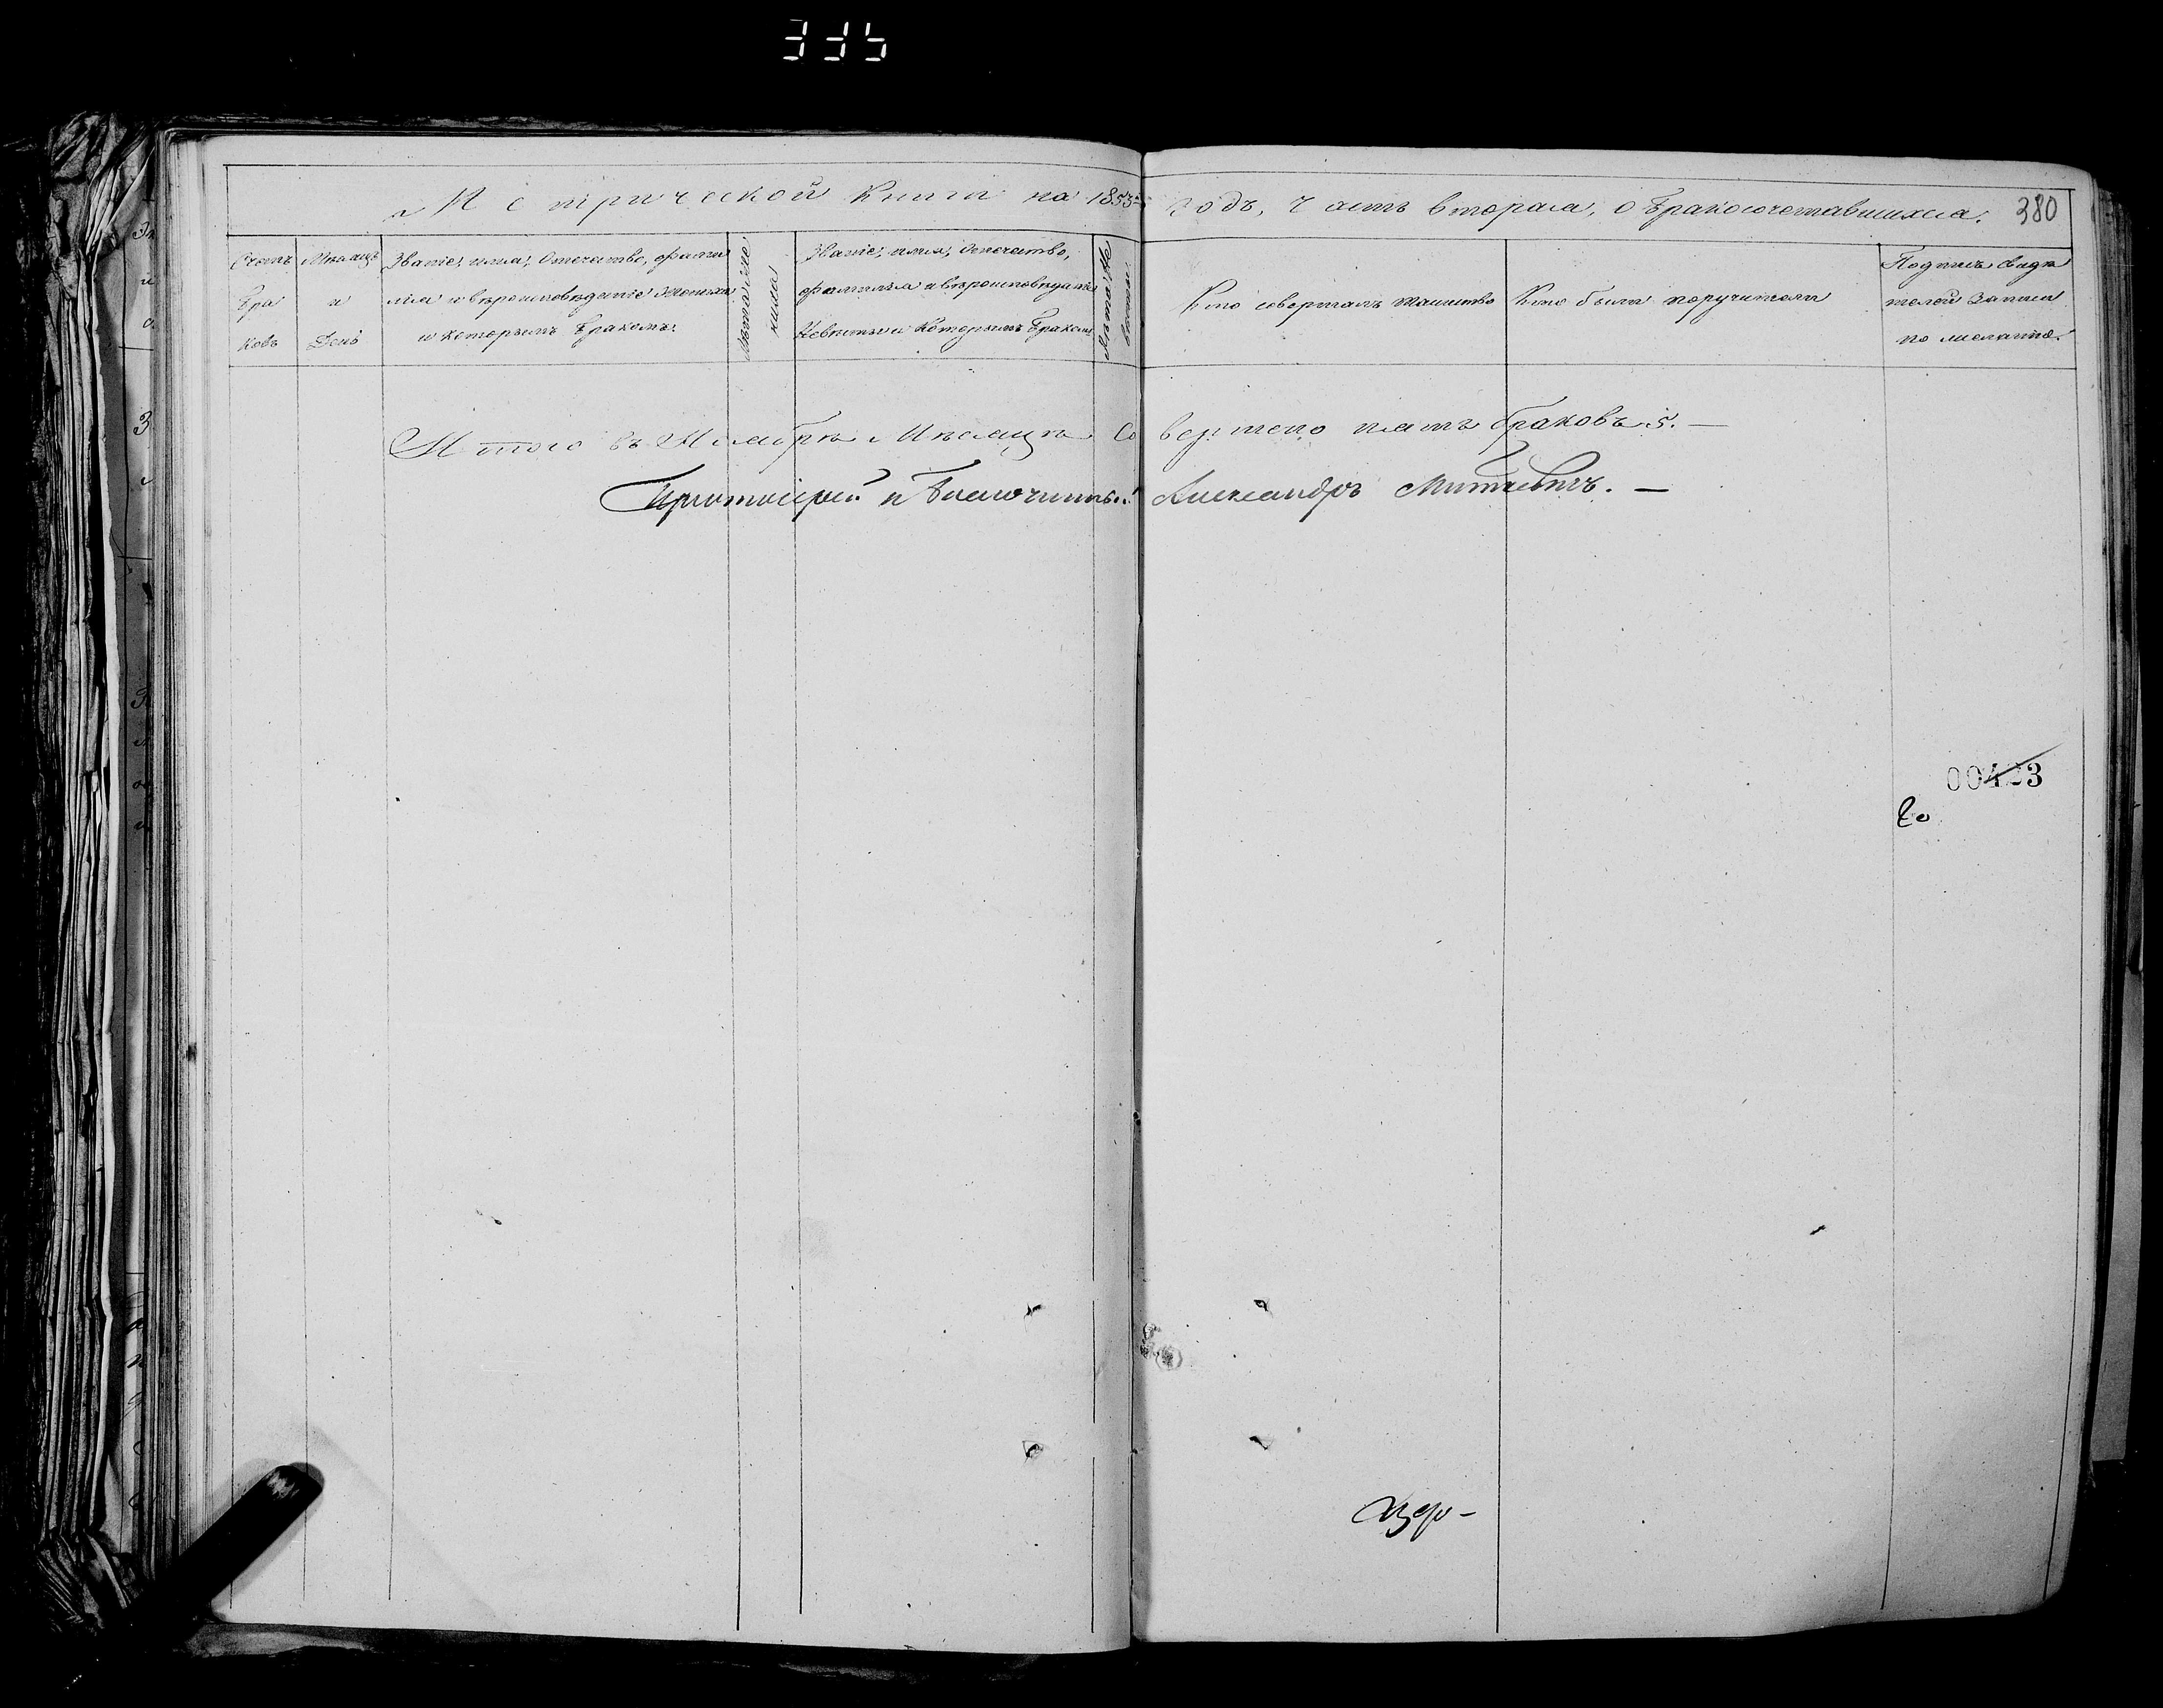 335
Метрической книги на 1855 годъ, Часть вторая, о бракосочетавшихся.
380
Счетъ браковъ
Мѣсяцъ и День
Званіе, имя, отечество, фамилія и вѣроисповѣданіе жениха и которымъ бракомъ.
Лѣта жениха
Званіе, имя, отечество, фамилія и вѣроисповѣданіе невѣсты и которымъ бракомъ
Лѣта невѣсты
Кто совершалъ таинство
Кто были поручители
Подпись свидѣтелей записи по желанію.
Итого въ Ноябрѣ Мѣсяцѣ совершено пять браковъ 5. —
Протоіерей и Благочинный Александръ Миткевичъ. —
00423